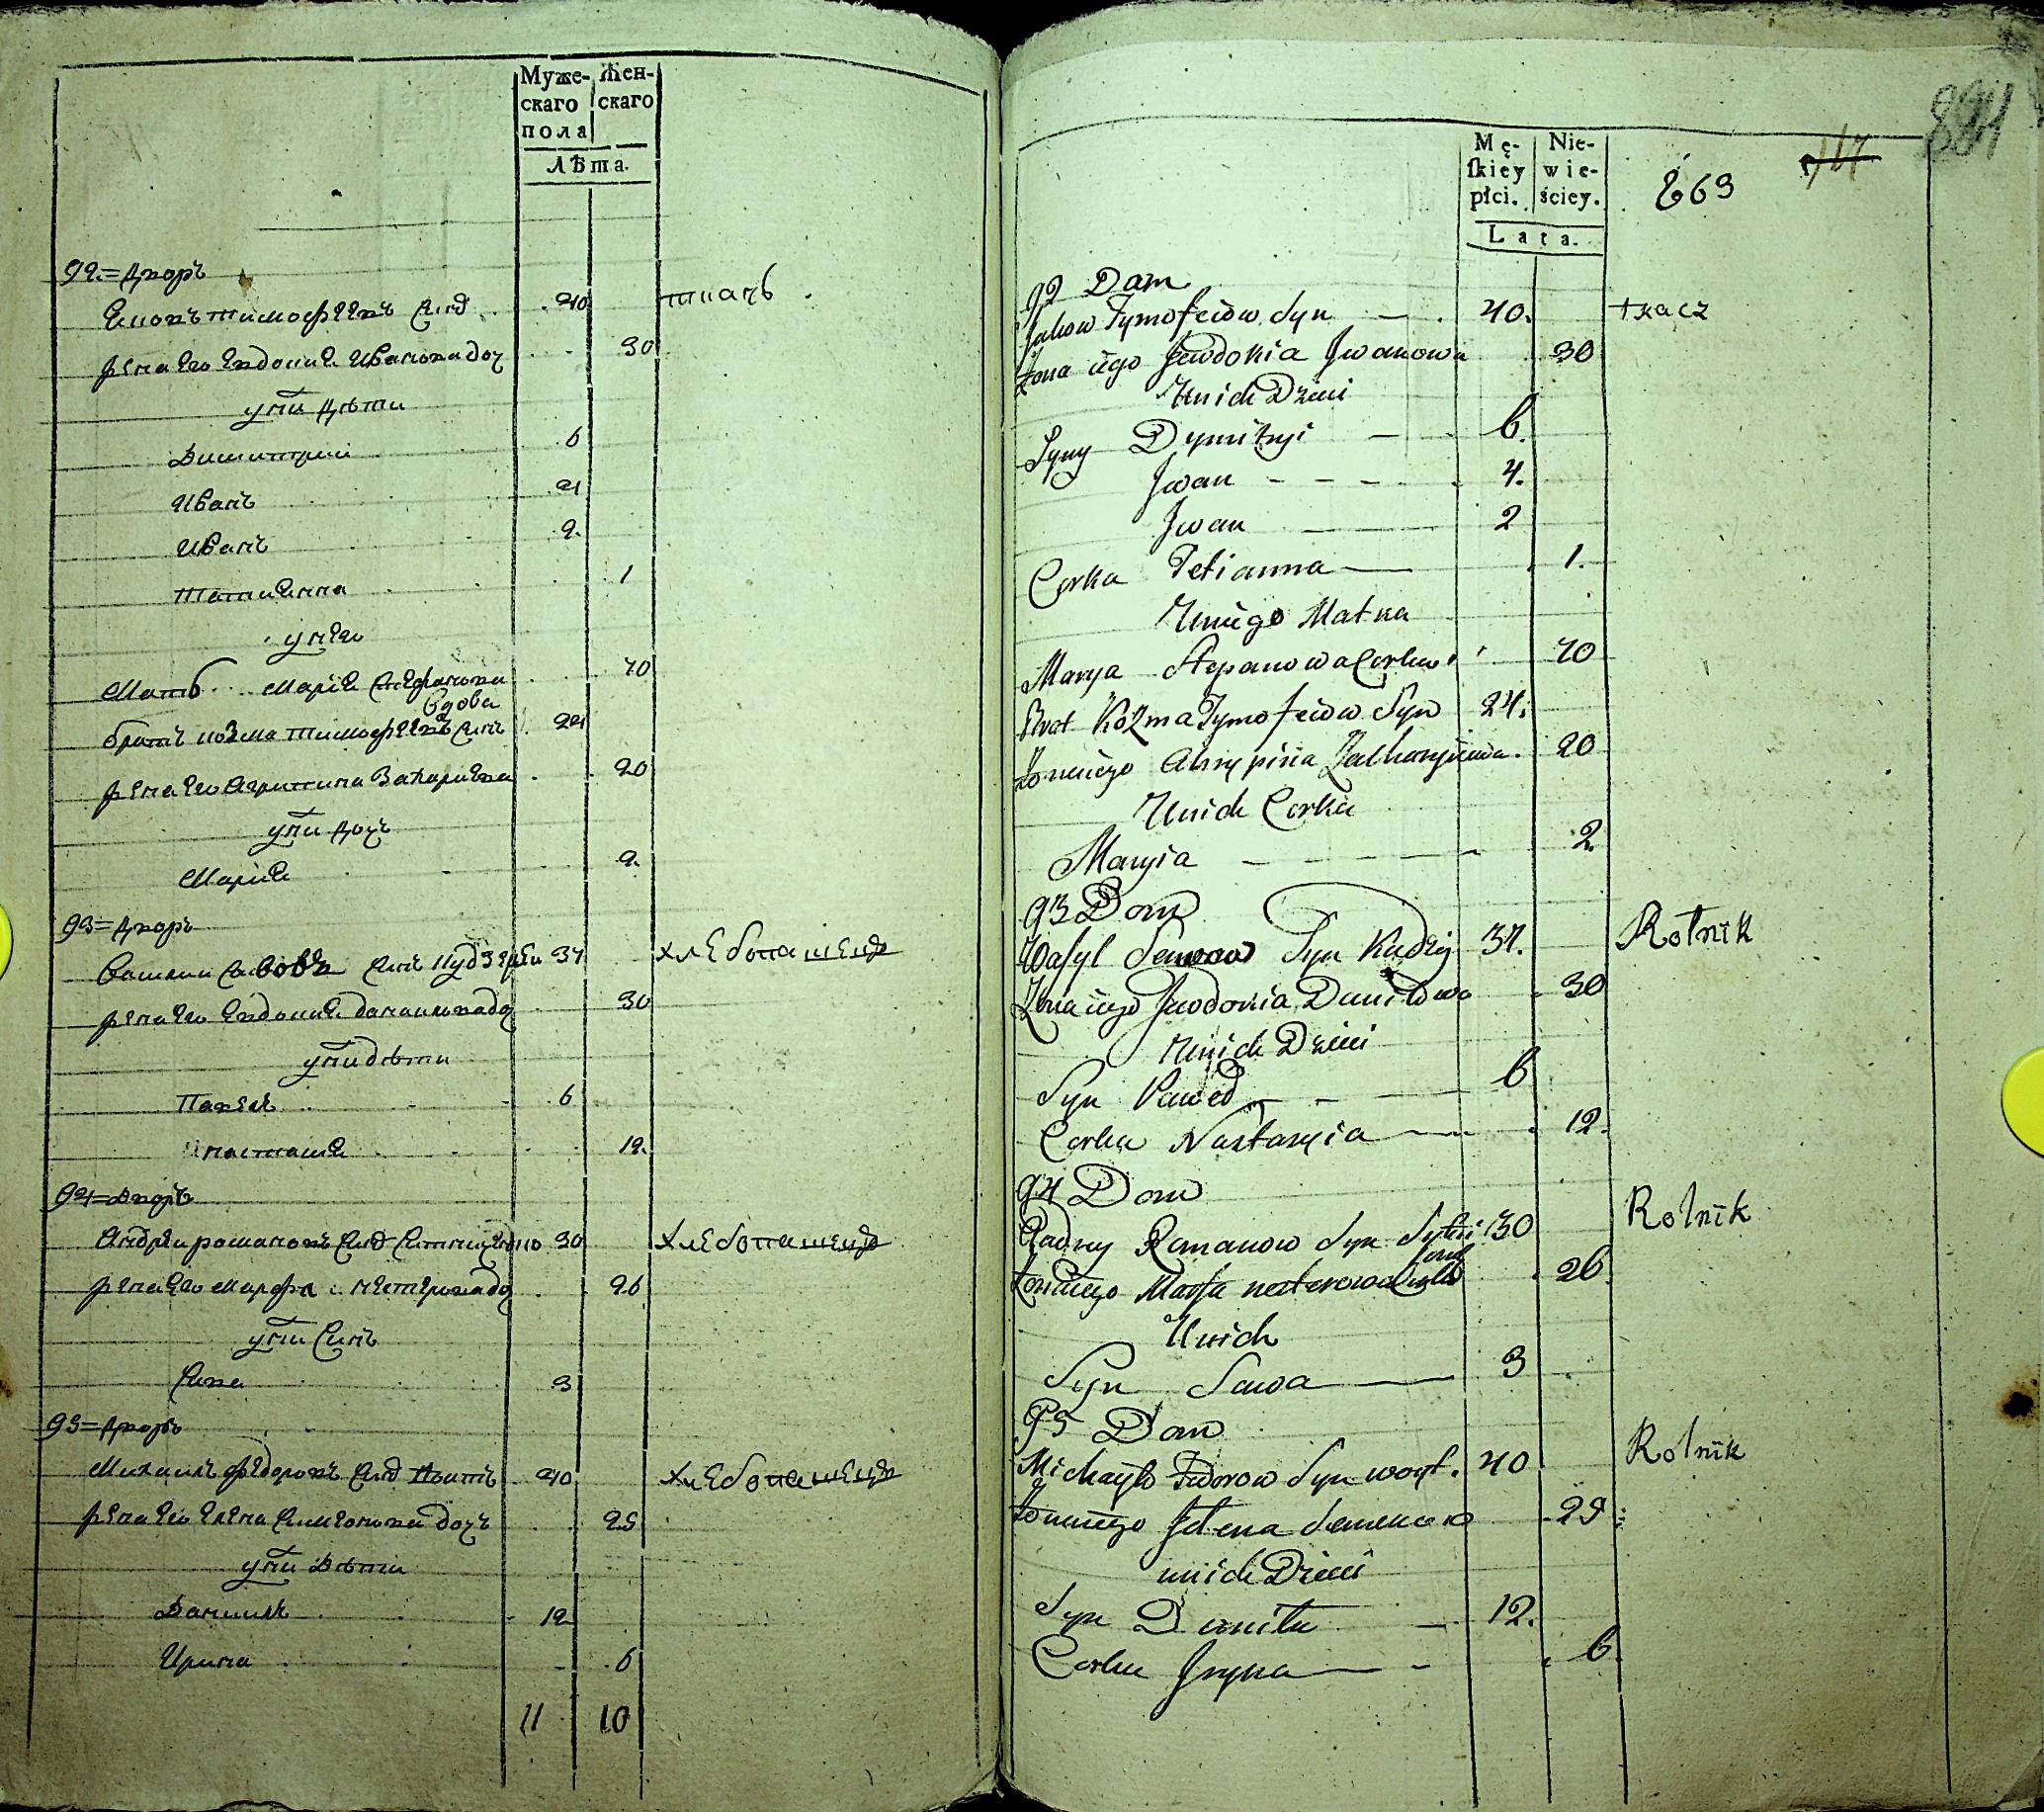 Муже- Жен-
скаго скаго
пола
Лѣта.
92 = дворъ
Яковъ тимофеевъ Син 40 ткачь
жена его Евдокия Иванова доч 30
у них дѣти
Димитрий 6
Иванъ 4
Иванъ 2
Татиянна 1
у него
Мать Мария Стефанова 70
вдова
братъ козма тимофеевъ Синъ 24
жена его Агрипина Захариева 20
у них дочъ
Мария 2
93 = дворъ
Василий Синъ 37 хлебопашецъ
жена его Евдокия данилова доч 30
у них дѣти
Павелъ 6
настасия 12
94 = дворъ
Андрей романовъ Син 30 хлебопашецъ
жена его марфа нестерова доч 26
у них Синъ
Сава 3
95 = дворъ
Михаилъ федоровъ Син 40 хлебопашецъ
жена его Елена Симеонова дочъ 25
у них дѣти
Даниилъ 12
Ирина 6
11 10
Mę- Nie-
skiey wie-
płci. ściey.
Lata.
869
894
92 Dom
Jakow Tymofeiow Syn 40. tkacz
Zona iego Jewdokia Jwanowa 30
U nich Dzieci
Syny Dymitryi 6.
Jwan 4.
Jwan 2
Corka Tetianna 1.
U niego Matka
Marya Stepanowa Corka 70
Brat Kozma Tymofeiow Syn 24.
Zona iego Ahrypina Zacharyiewa 20
U nich Corka
Maryia 2
93 Dom
Wasyl Syn 37. Rolnik
Zona iego Jewdokia Daniłowa 30
U nich Dzieci
Syn Paweł 6
Corka Nastasyia 12.
94 Dom
Romanow Syn 30 Rolnik
Zona iego Marfa nesterowa Corka 26
U nich
Syn Sawa 3
95 Dom
Michayło Fedorow Syn woyt. 40 Rolnik
Zona iego Jelena 25
u nich Dzieci
Syn Daniło 12.
Corka Jryna 6.